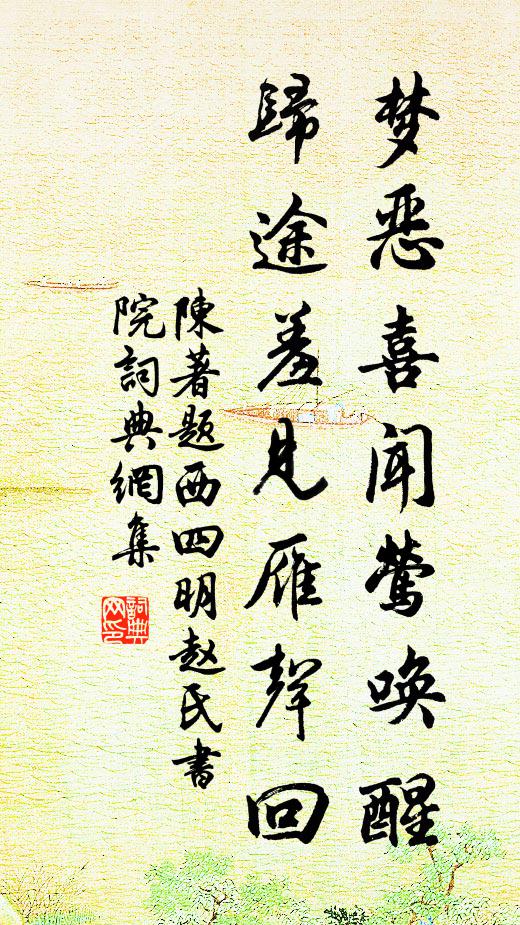 梦恶喜闻莺唤醒
歸途羞見雁聲回
陳著題西四明赵氏書
院詞典網集
詞典
网印